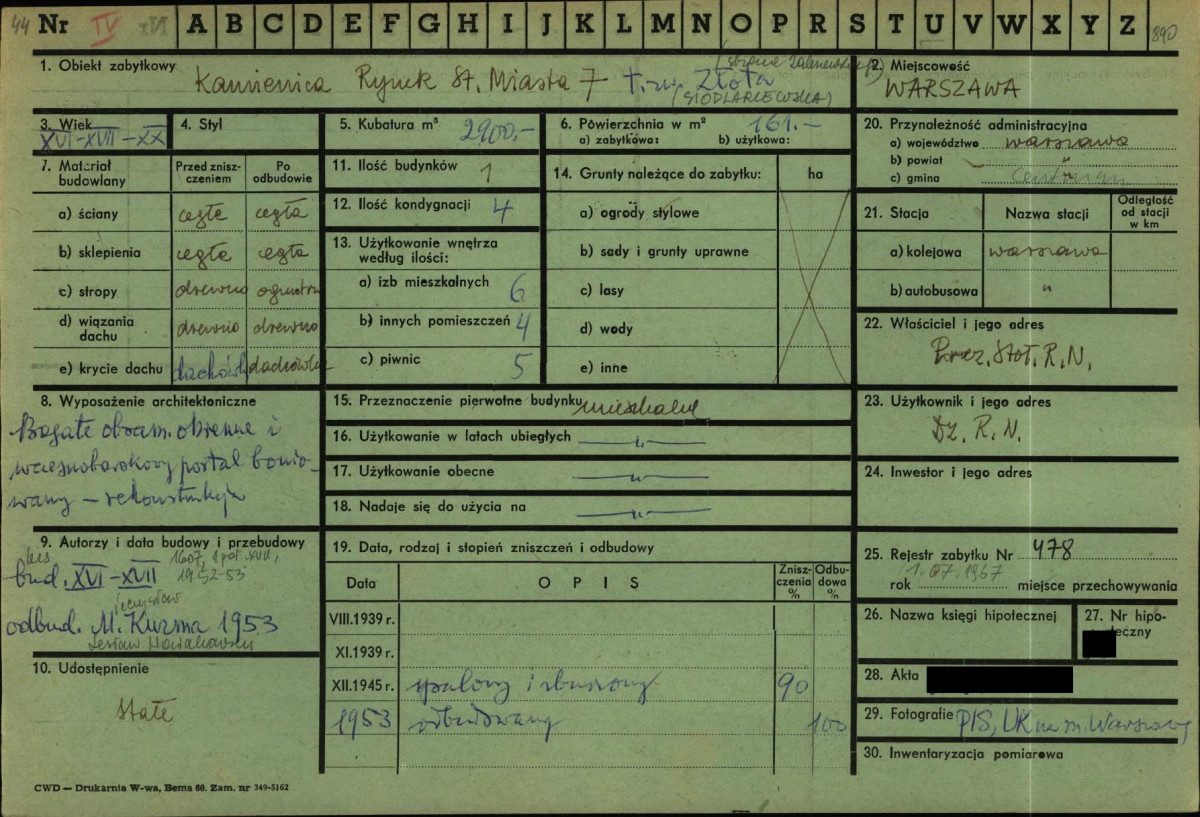 44 Nr IV A B C D E F G H I J K L M N O P R S T U V W X Y Z 890
1. Obiekt zabytkowy
Kamienica Rynek St. Miasta 7 t.zw. Złota
2. Miejscowość
WARSZAWA
3. Wiek
XVI-XVII-XX
4. Styl
5. Kubatura m³ 2900,-
6. Powierzchnia w m² 161.-
a) zabytkowa: b) użytkowa:
20. Przynależność administracyjna
a) województwo warszawa
b) powiat "
c) gmina
7. Materiał budowlany
Przed znisz-
czeniem
Po
odbudowie
a) ściany cegła cegła
b) sklepienia cegła cegła
c) stropy drewno ogniotrw
d) wiązania
dachu drewno drewno
e) krycie dachu dachówk dachówka
11. Ilość budynków 1
12. Ilość kondygnacji 4
13. Użytkowanie wnętrza
według ilości:
a) izb mieszkalnych 6
b) innych pomieszczeń 4
c) piwnic 5
14. Grunty należące do zabytku: ha
a) ogrody stylowe
b) sady i grunty uprawne
c) lasy
d) wody
e) inne
21. Stacja Nazwa stacji
Odległość
od stacji
w km
a) kolejowa warszawa
b) autobusowa "
22. Właściciel i jego adres
Prez. Stoł. R. N.
8. Wyposażenie architektoniczne
Bogate obram. okienne i
wczesnobarokowy portal bonio-
wany – rekonstrukcja
15. Przeznaczenie pierwotne budynku mieszkalne
16. Użytkowanie w latach ubiegłych — " —
17. Użytkowanie obecne — " —
18. Nadaje się do użycia na — " —
23. Użytkownik i jego adres
Dz. R. N.
24. Inwestor i jego adres
9. Autorzy i data budowy i przebudowy
1607, 1 poł. XVII,
1952-53
bud. XVI-XVII
odbud. M. Kuzma 1953
10. Udostępnienie
stałe
19. Data, rodzaj i stopień zniszczeń i odbudowy
Data OPIS
Znisz-
czenia
%
Odbu-
dowa
%
VIII.1939 r.
XI.1939 r.
XII.1945 r. spalony i zburzony 90
1953 odbudowany 100
25. Rejestr zabytku Nr 478
1.07.1967
rok miejsce przechowywania
26. Nazwa księgi hipotecznej
27. Nr hipo-
teczny
28. Akta
29. Fotografie PIS, UK na m. Warszawę
30. Inwentaryzacja pomiarowa
CWD — Drukarnia W-wa, Bema 60. Zam. nr 349-5162